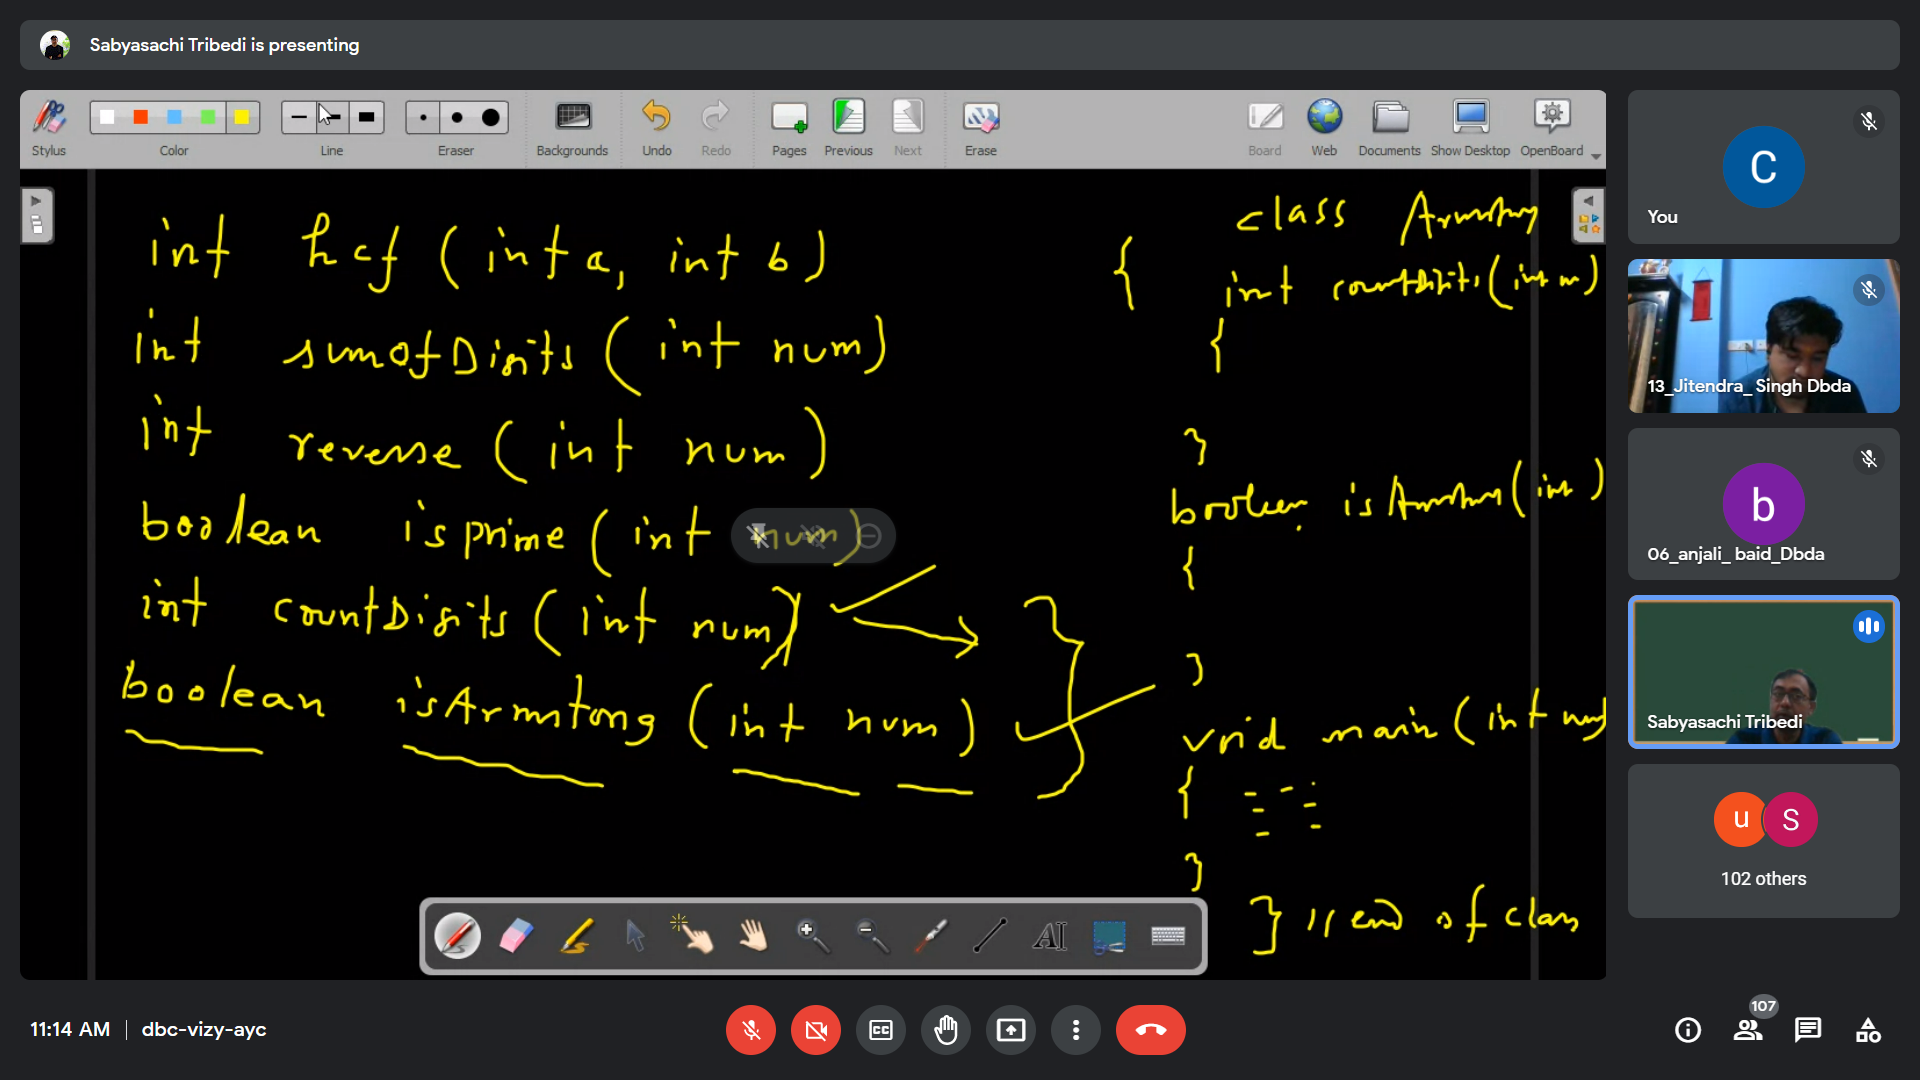 Sabyasachi Tribedi is presenting
Stylus Color Line Eraser Backgrounds Undo Redo Pages Previous Next Erase Board Web Documents Show Desktop OpenBoard
int hcf (int a, int b)
int sumofDigits (int num)
int reverse (int num)
boolean isprime (int num)
int countDigits (int num)
boolean isArmstong (int num)
class
{
int countDigits (int n)
{
}
boolean (int )
{
}
void main (int num)
{
}
} // end of class
AI
C
You
13_Jitendra_ Singh Dbda
b
06_anjali_ baid_Dbda
Sabyasachi Tribedi
u S
102 others
11:14 AM | dbc-vizy-ayc
CC
107